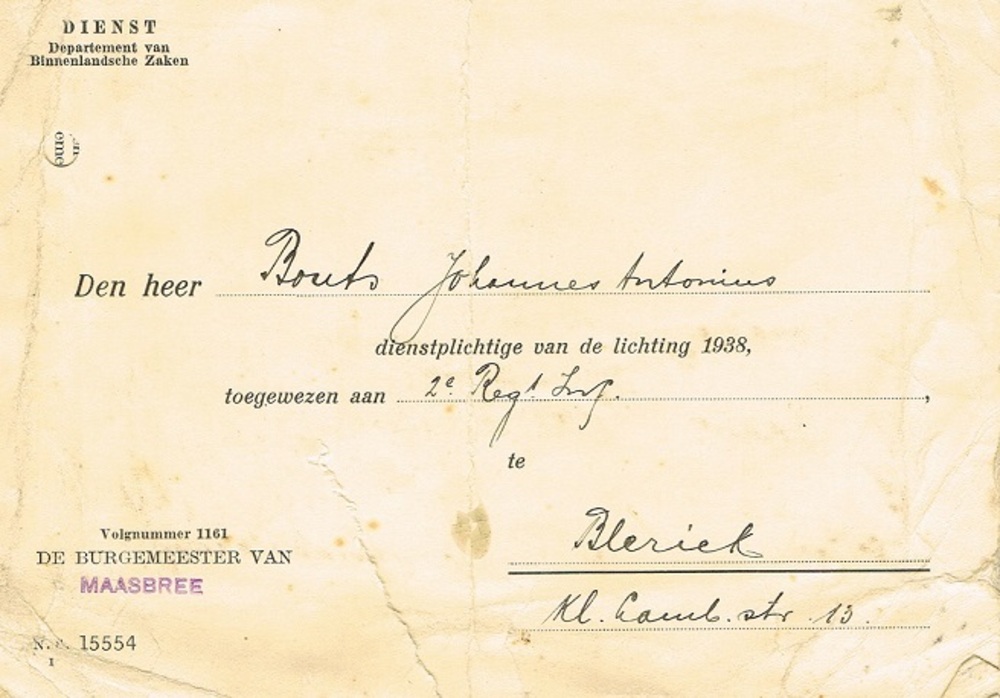 DIENST
Departement van
Binnenlandsche Zaken
eme
Den heer Bouts Johannes Antonius
dienstplichtige van de lichting 1938,
toegewezen aan 2e Regt Inf. ,
te
Blerick
Kl. Camb. str 13.
Volgnummer 1161
DE BURGEMEESTER VAN
MAASBREE
N. 15554
1